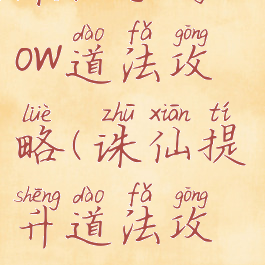 dào fǎ gōng
ow道法攻
lüè zhū xiān tí
略(诛仙提
shēng dào fǎ gōng
升道法攻